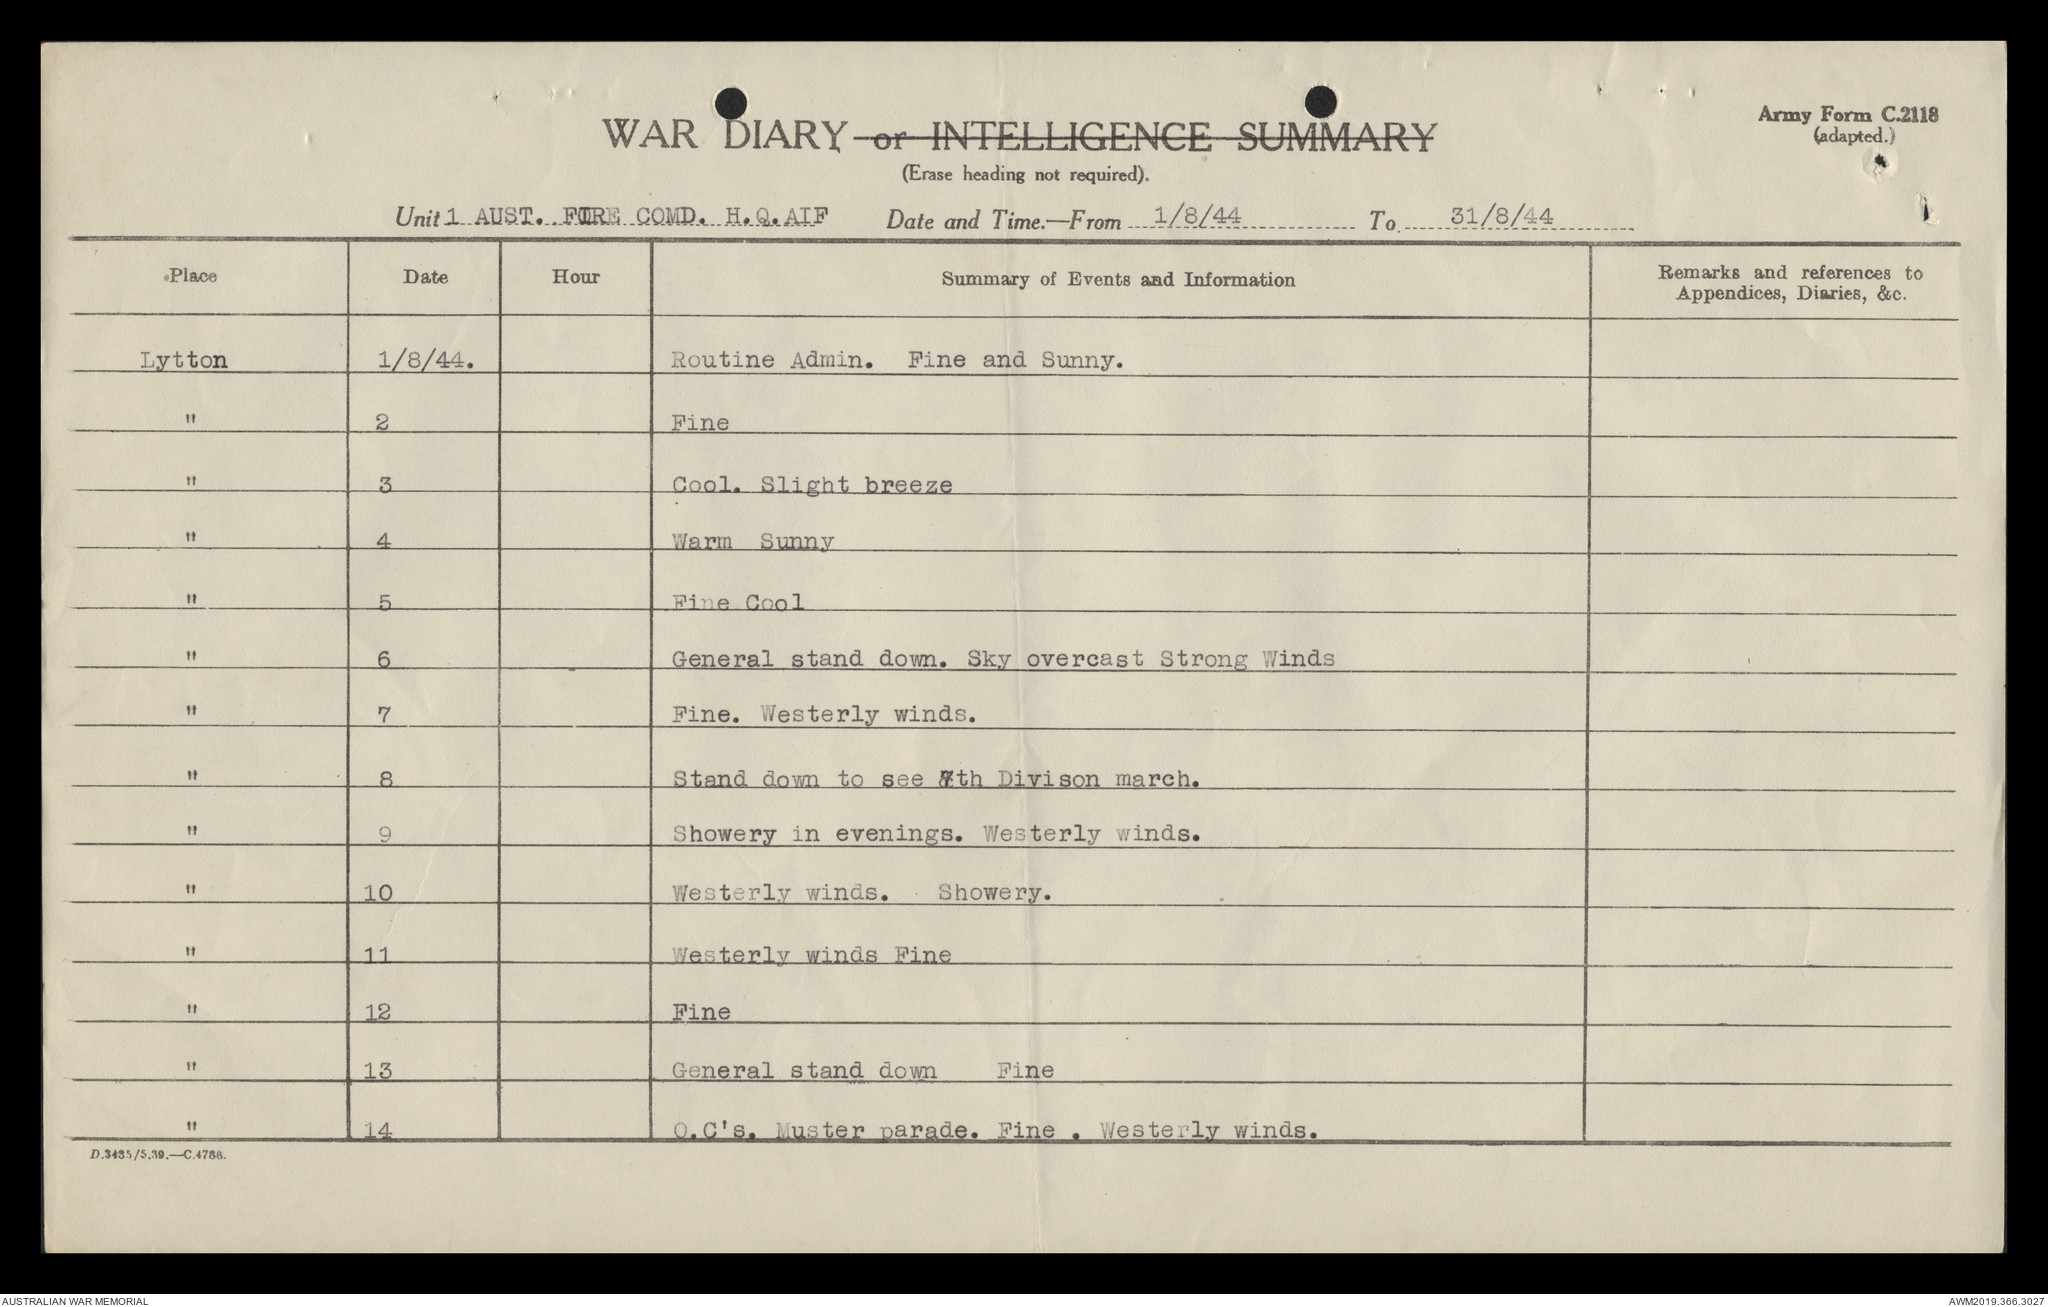 WAR DIARY or INTELLIGENCE SUMMARY
Army Form C.2118
(adapted.)
(Erase heading not required).
Unit 1 AUST. FIRE COMD. H.Q.AIF Date and Time.—From 1/8/44 To 31/8/44
Place Date Hour Summary of Events and Information Remarks and references to
Appendices, Diaries, &c.
Lytton 1/8/44. Routine Admin. Fine and Sunny.
" 2 Fine
" 3 Cool. Slight breeze
" 4 Warm Sunny
" 5 Fine Cool
" 6 General stand down. Sky overcast Strong Winds
" 7 Fine. Westerly winds.
" 8 Stand down to see 7th Divison march.
" 9 Showery in evenings. Westerly winds.
" 10 Westerly winds. Showery.
" 11 Westerly winds Fine
" 12 Fine
" 13 General stand down Fine
" 14 O.C's. Muster parade. Fine . Westerly winds.
D.3435/5.39.—C.4786.
AUSTRALIAN WAR MEMORIAL AWM2019.366.3027